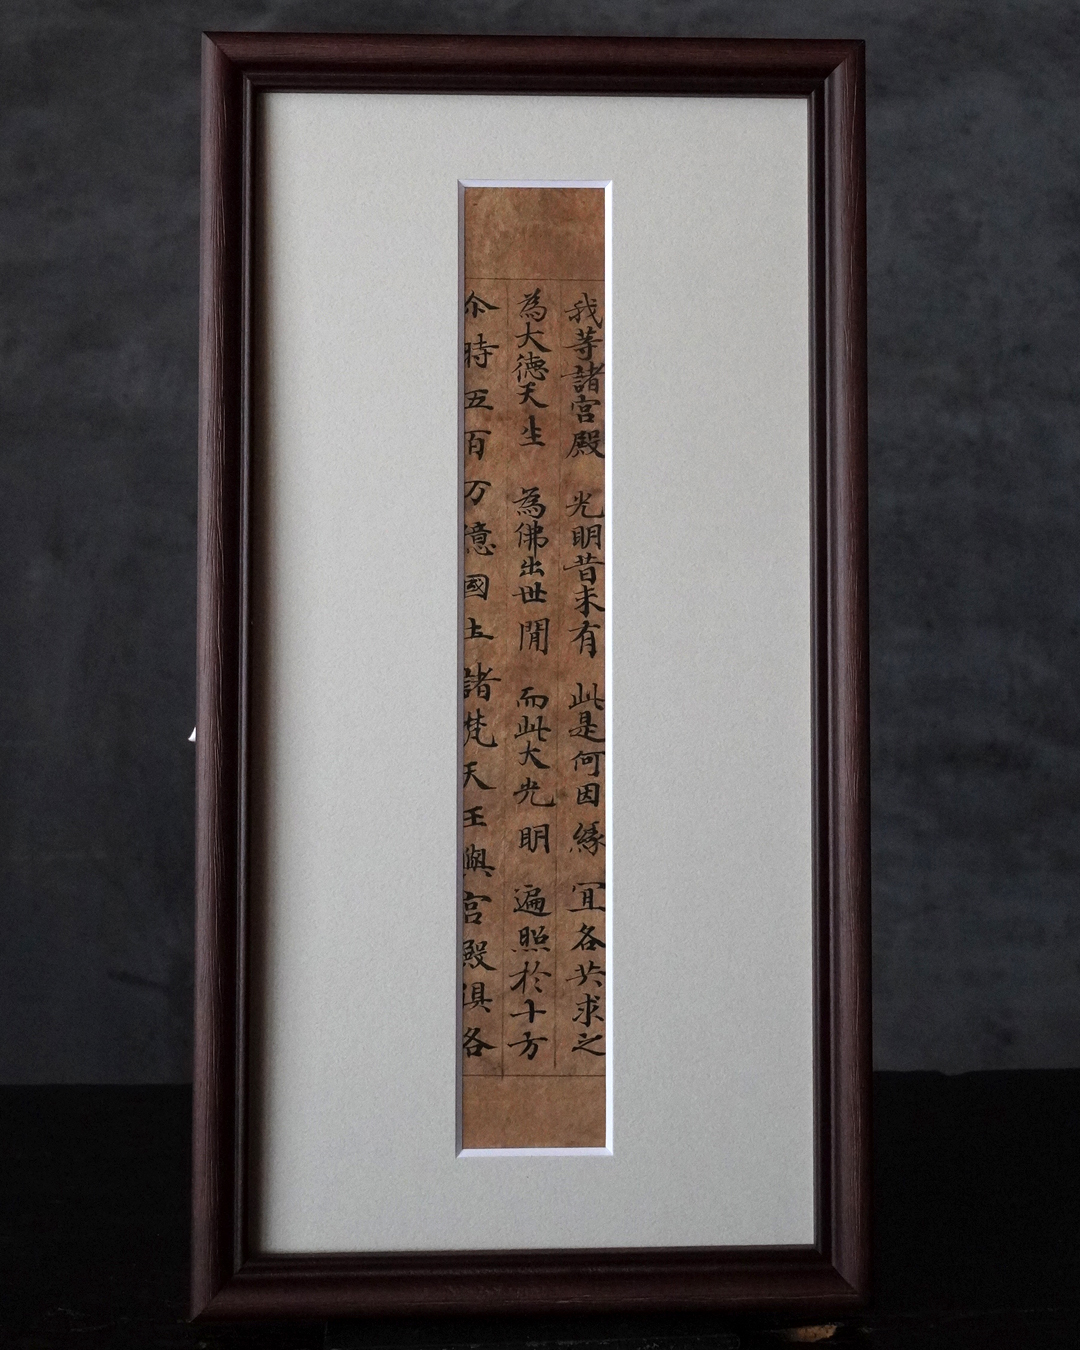 我等諸宮殿 光明昔未有 此是何因緣 冝各共求之
為大德天生 為佛出世閒 而此大光明 遍照於十方
尒時五百万億國土諸梵天王與宮殿俱各